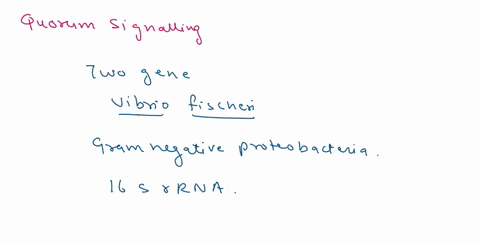 Quorum Signalling
Two gene
Vibrio fischeri
Gram negative proteobacteria.
16 s rRNA.